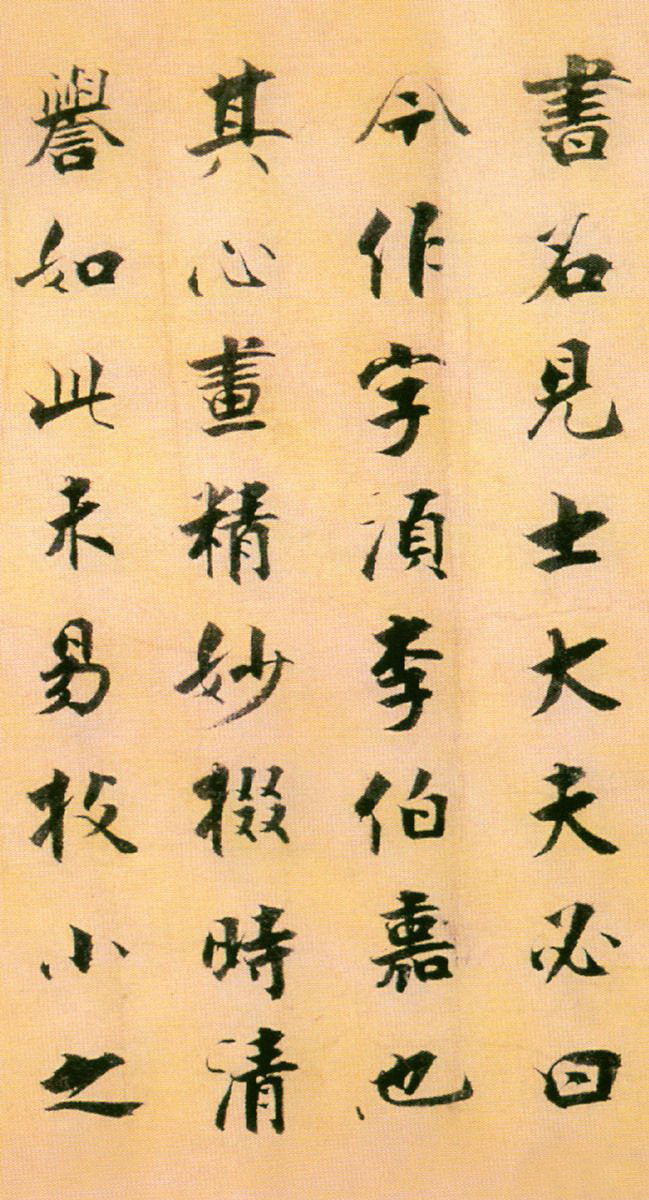 書名見士大夫必曰
今作字湏李伯嘉也
其心畫精妙掇時清
譽如此未易技小之